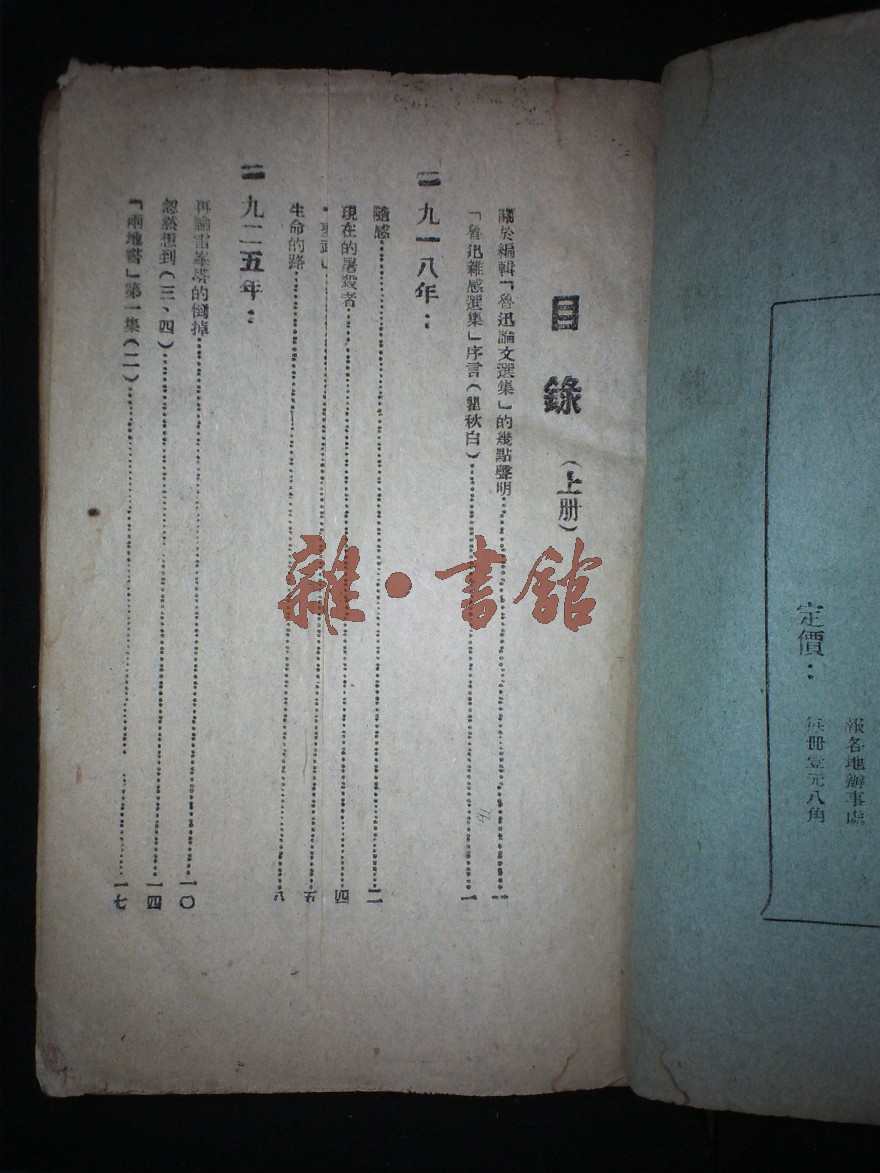 報各地辦事處
定價：每冊壹元八角
目錄（上册）
關於編輯「魯迅論文選集」的幾點聲明……一
「魯迅雜感選集」序言（瞿秋白）……一
一九一八年：
隨感……二
現在的屠殺者……四
「聖武」……五
生命的路……八
一九二五年：
再論雷峯塔的倒掉……一〇
忽然想到（三、四）……一四
「兩地書」第一集（二）……一七
雜·書館